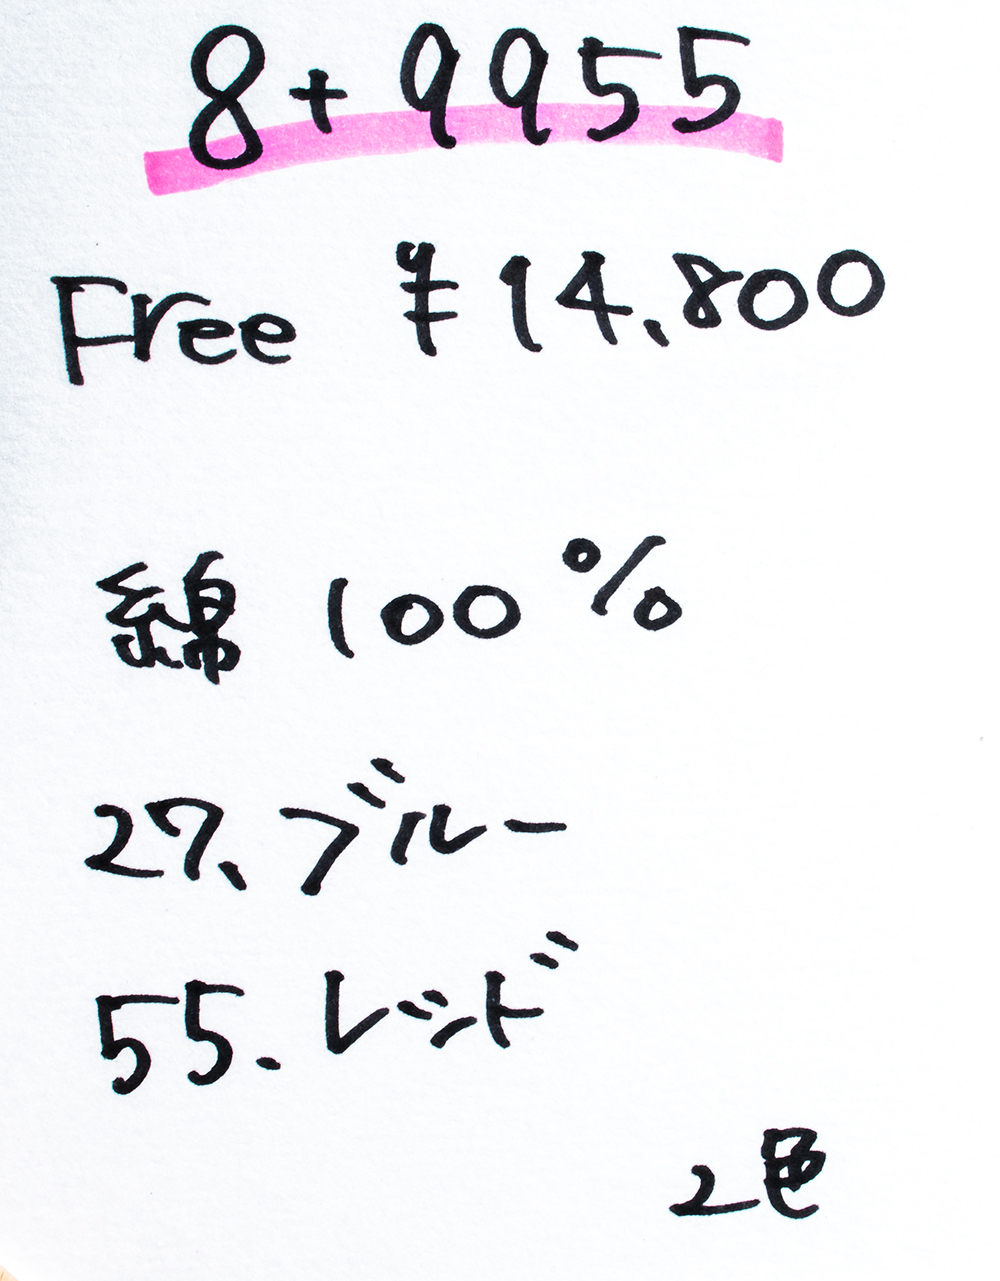 8+9955
Free ¥14,800
綿 100%
27、ブルー
55.レッド
2色